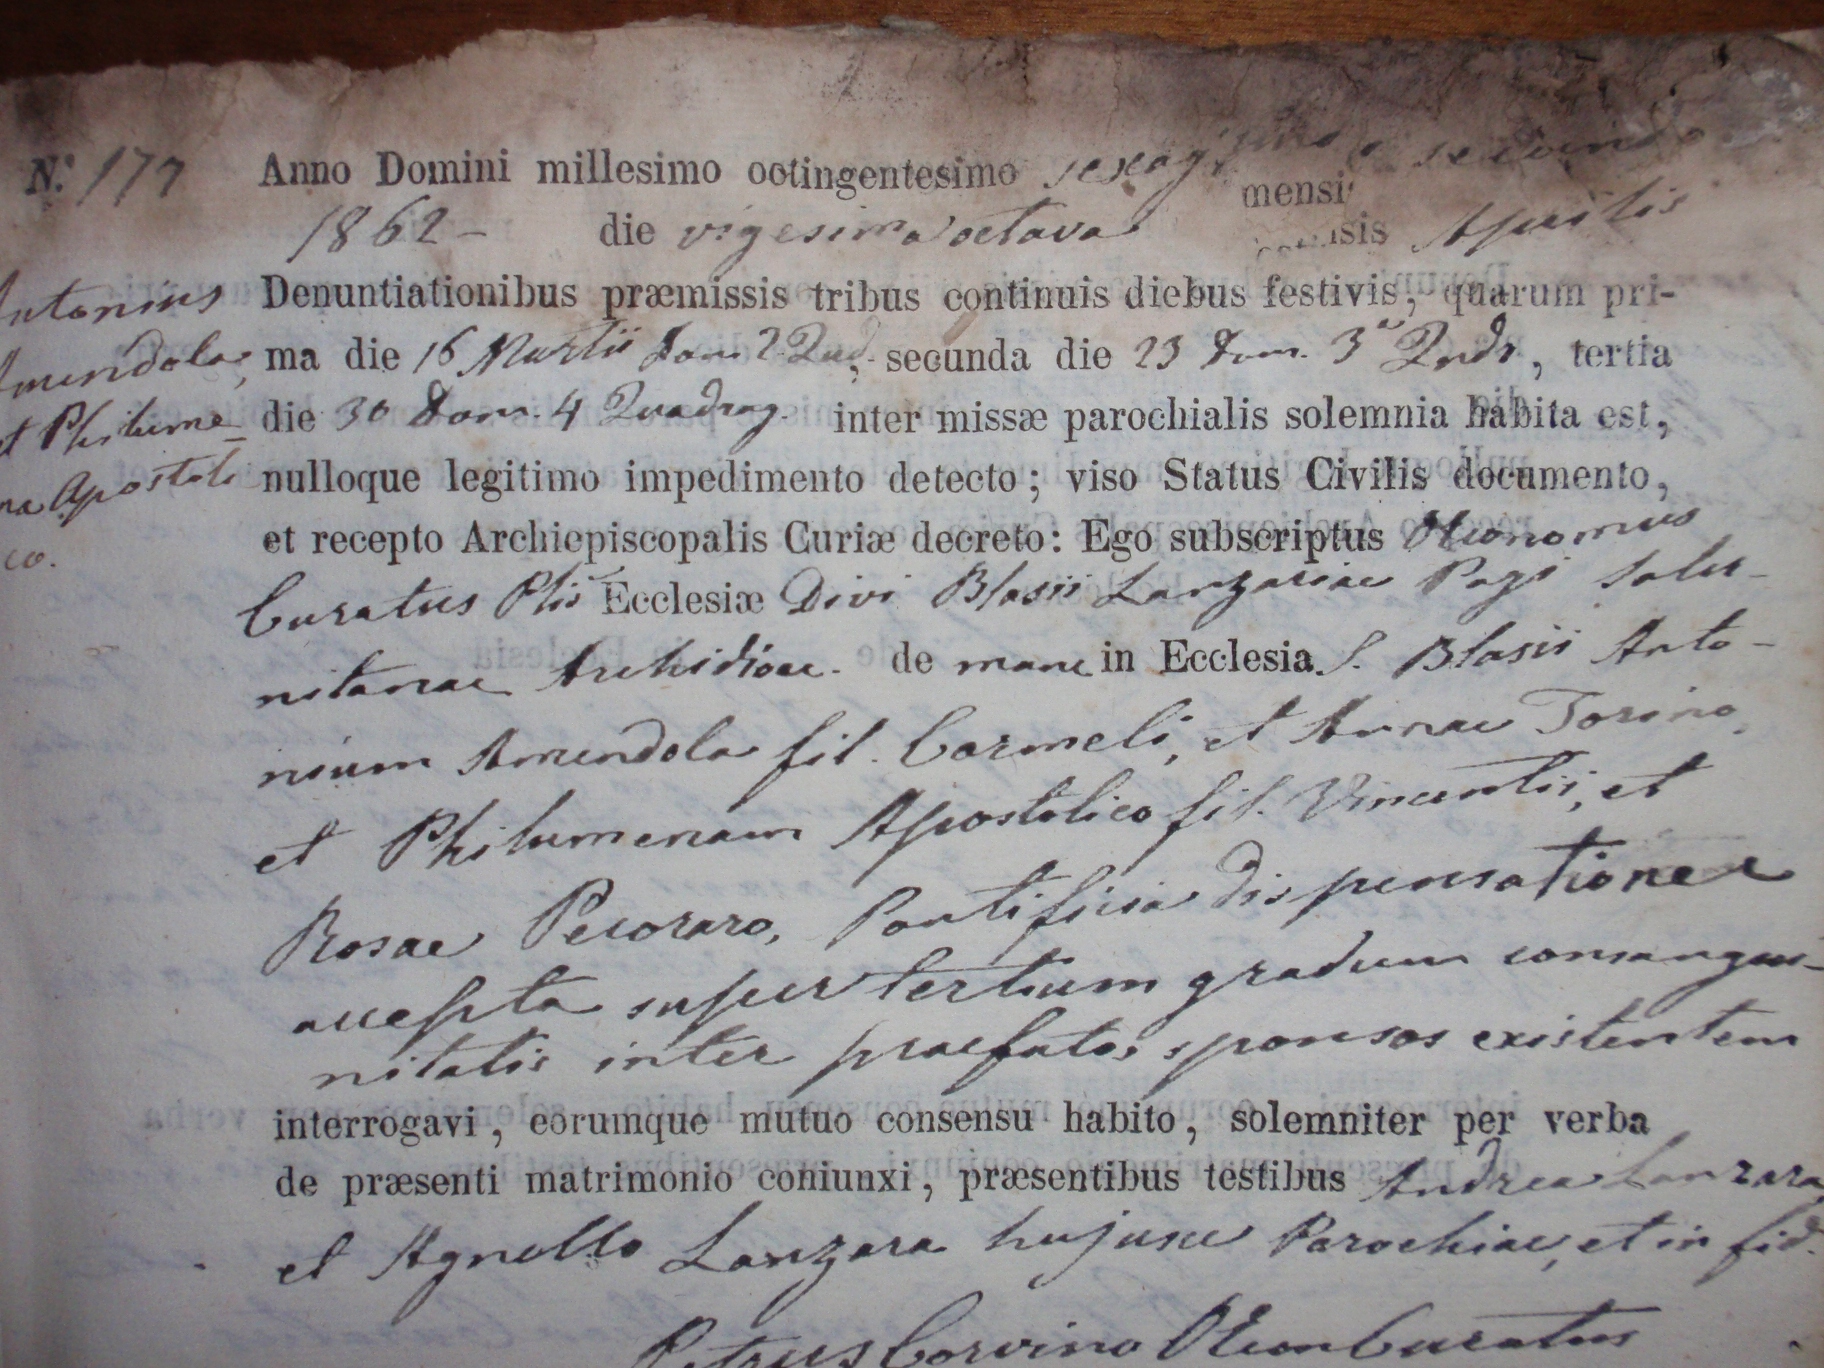 N.º 177 Anno Domini millesimo octingentesimo sexagesimo secundo
mensi
1862 - die vigesima octava ensis Aprilis
Antonius Denuntiationibus præmissis tribus continuis diebus festivis, quarum pri-
Amendola, ma die 16 Martii Dom. 2 Quad., secunda die 23 Dom. 3ª Qudr, tertia
et Philume- die 30 Dom. 4 Quadrag. inter missæ parochialis solemnia habita est,
na Apostoli nulloque legitimo impedimento detecto; viso Status Civilis documento,
co. et recepto Archiepiscopalis Curiæ decreto: Ego subscriptus Oeconomus
Curatus Plis Ecclesiæ Divi Blasii Lanzariae Pagi Saler-
nitanae Archidioec. de mane in Ecclesia S. Blasii Anto-
nium Amendola fil. Carmeli, et Annae Torino,
et Philumenam Apostolico fil. Vincentii, et
Rosae Pecoraro, Pontificia dispensatione
accepta super tertium gradum consangui-
nitatis inter praefatos sponsos existentem
interrogavi, eorumque mutuo consensu habito, solemniter per verba
de præsenti matrimonio coniunxi, præsentibus testibus Andrea Lanzara,
et Agnello Lanzara hujusce Parochiae, et in fid.
Petrus Corvino Oecon Curatus